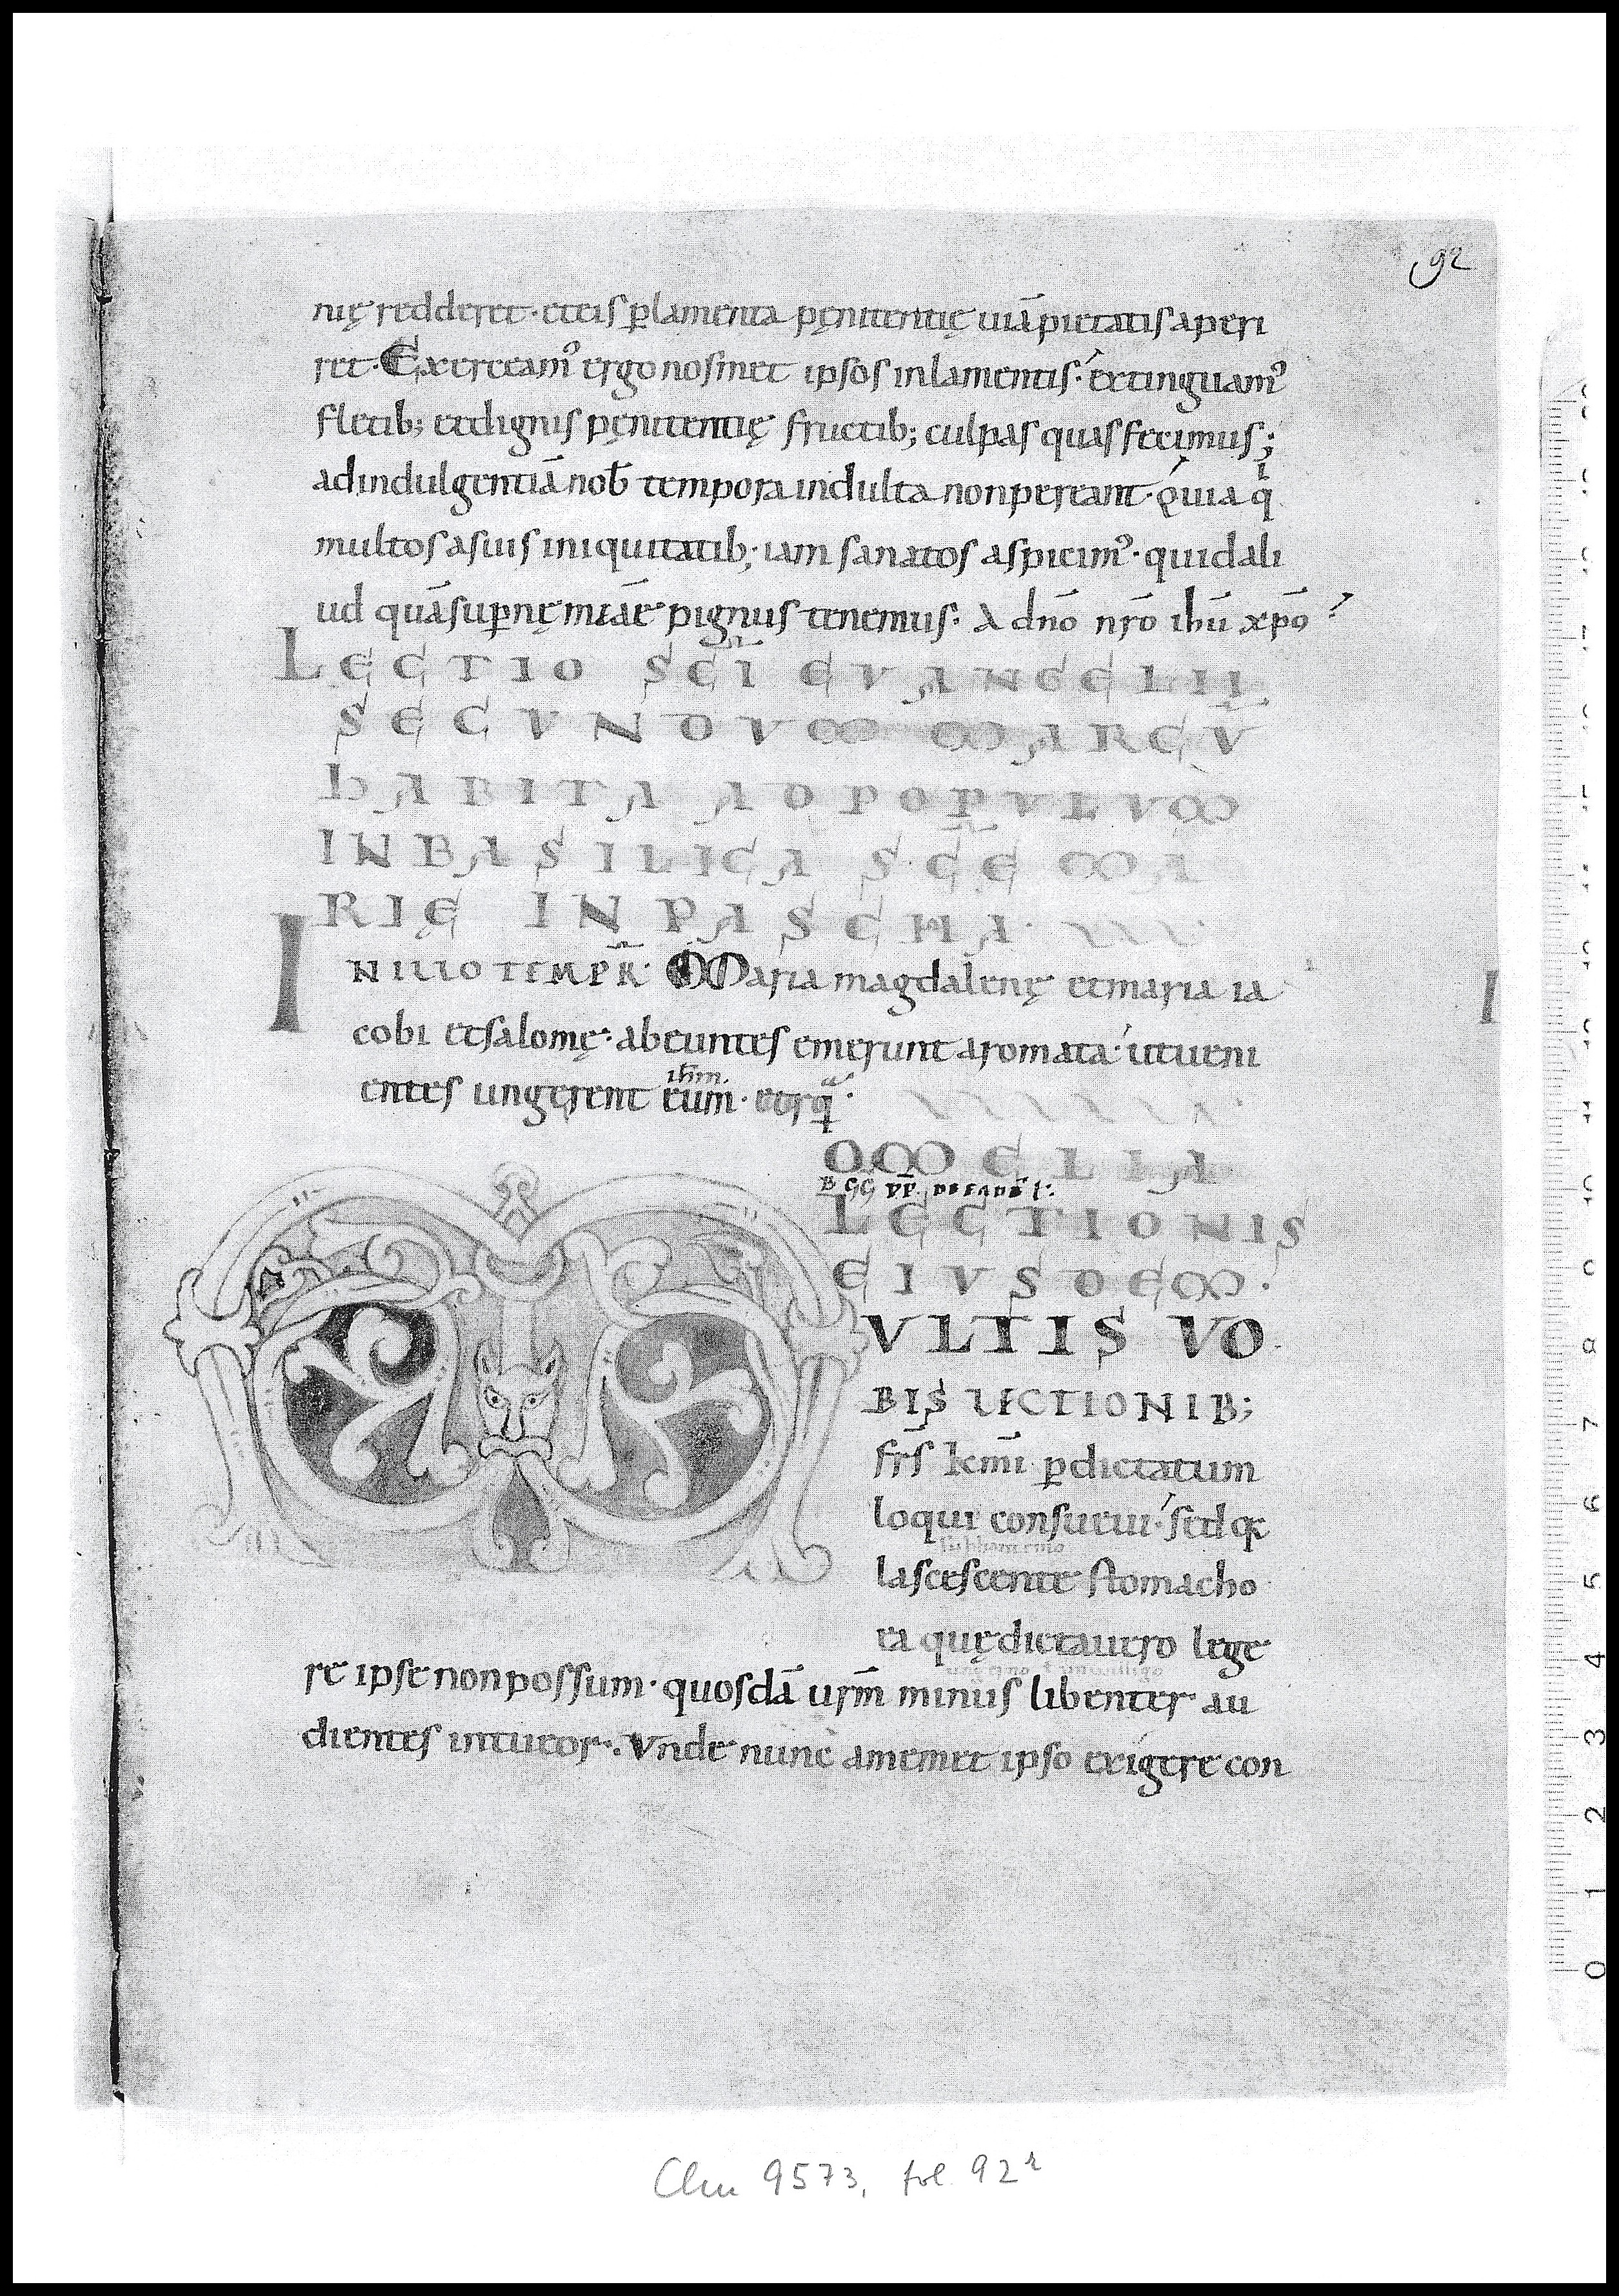 92
nię redderet · et eis p̱lamenta pęnitentię uiā pietatis aperi
ret · Exerceam᾿ ergo nosmet ipsos in lamentis · extinguam᾿
fletib; et dignis pęnitentię fructib; culpas quas fecimus;
ad indulgentiā nob̄ tempora indulta non pereant · Quia q
multos a suis iniquitatib; iam sanatos aspicim᾿ · quid ali
ud quā sup̱nę mĩae pignus tenemus · A dn̄o nr̄o ihū xp̄o
LECTIO SC̄I EVANGELII
SECVNDVM MARCV̄
HABITA AD POPVLVM
IN BASILICA SC̄E MA
RIĘ IN PASCHA ·
IN ILLO TEMPR̄ · Maria magdalenę et maria ia
cobi et salomę · abeuntes emerunt aromata · ut ueni
ihm̄
entes ungerent eum · et rq̄ ·
OMELIA
B GG PP. DE EADĒ L:
LECTIONIS
EIVSDEM ·
MVLTIS VO
BIS LECTIONIB;
fr̄s km̄i p̱ dictatum
loqui consueui · sed qa
lascescente stomacho
ea quę dictauero lege
re ipse non possum · quosdā ur̄m minus libenter au
dientes intueor ·. Vnde nunc a memet ipso exigere con
Clm 9573, fol. 92r
0 1 2 3 4 5 6 7 8 9 10 11